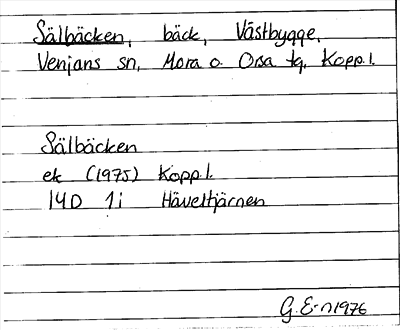 Sälbäcken, bäck, Västbygge,
Venjans sn, Mora o. Orsa tg, Kopp. l.
Sälbäcken
ek (1975) Kopp. l.
14D 1i Häveltjärnen
G. E-n 1976